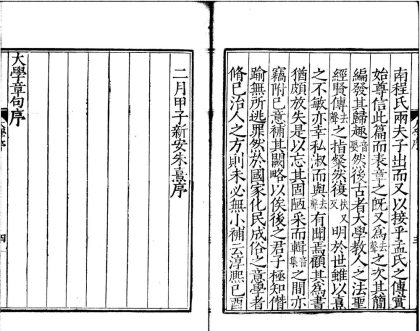 南程氏兩夫子出而又以接乎孟氏之傳實
始尊信此篇而表章之既又為去聲之次其簡
編發其歸趣音娶然後古者大學教人之法聖
經賢傳去聲之指粲然復扶又反明於世雖以熹
之不敏亦幸私淑而與去聲有聞焉顧其為書
猶頗放失是以忘其固陋采而輯音集之間亦
竊附己意補其闕略以俟後之君子極知僭
踰無所逃罪然於國家化民成俗之意學者
脩己治人之方則未必無小補云淳熙己酉
二月甲子新安朱熹序
大學章句序